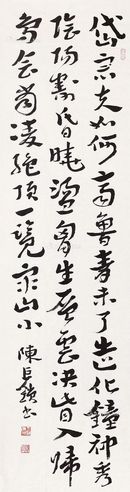 岱宗夫如何齊魯青未了造化鐘神秀
陰陽割昏曉盪胸生層雲決眥入歸
鳥會當凌絕頂一覽眾山小
陳巨鎖書